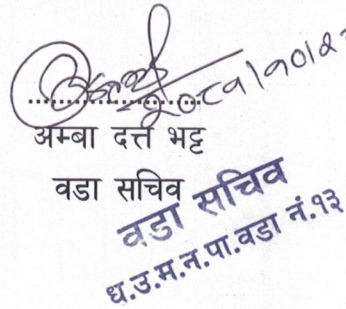 २०८१।१०।२
अम्बा दत्त भट्ट
वडा सचिव
वडा सचिव
ध.उ.म.न.पा.वडा नं.१३